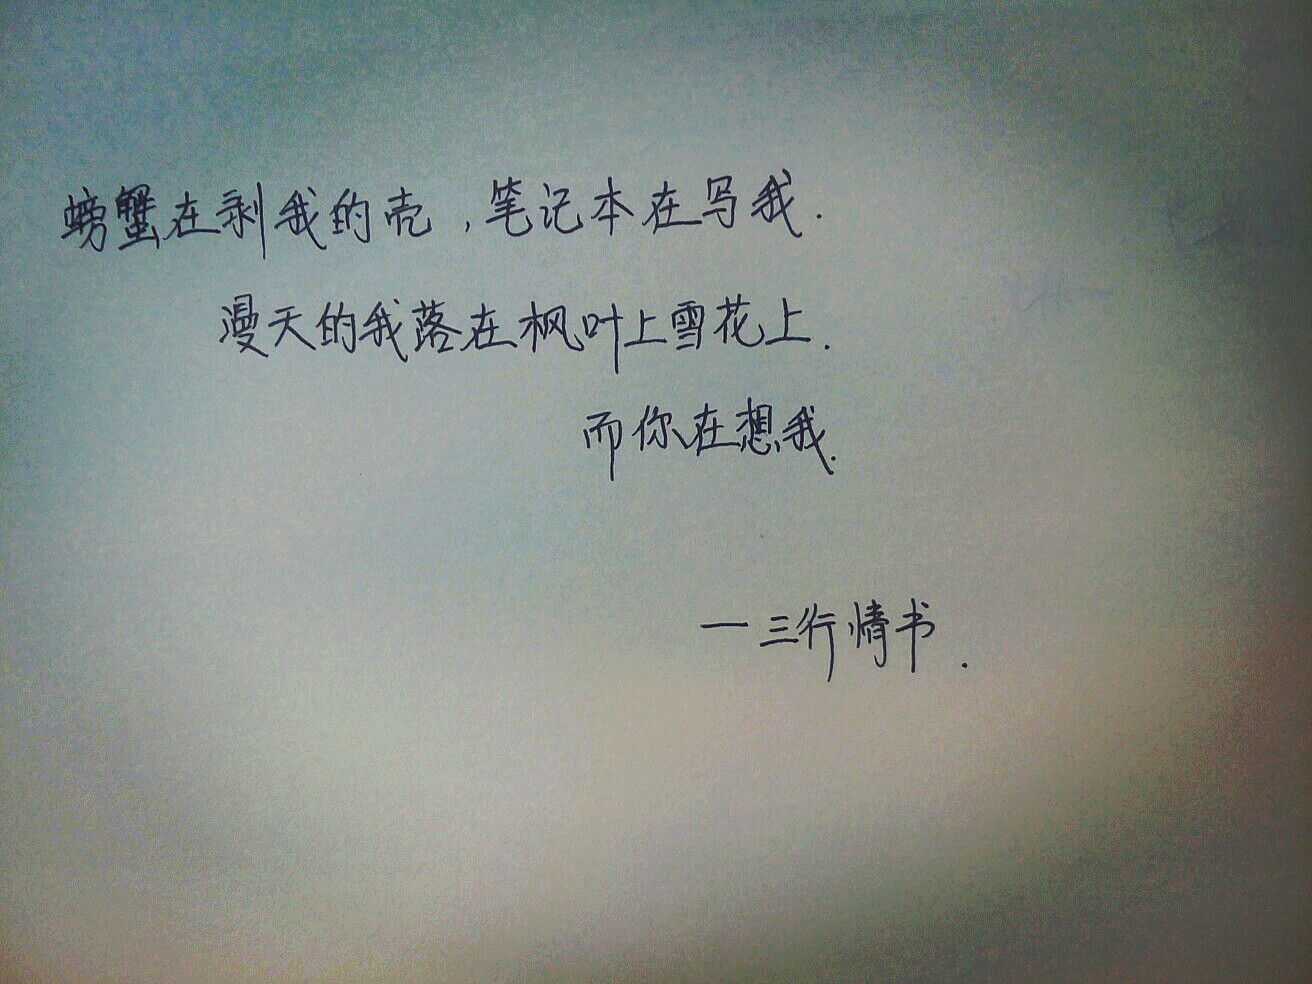 螃蟹在剥我的壳，笔记本在写我.
漫天的我落在枫叶上雪花上.
而你在想我.
一三行情书.